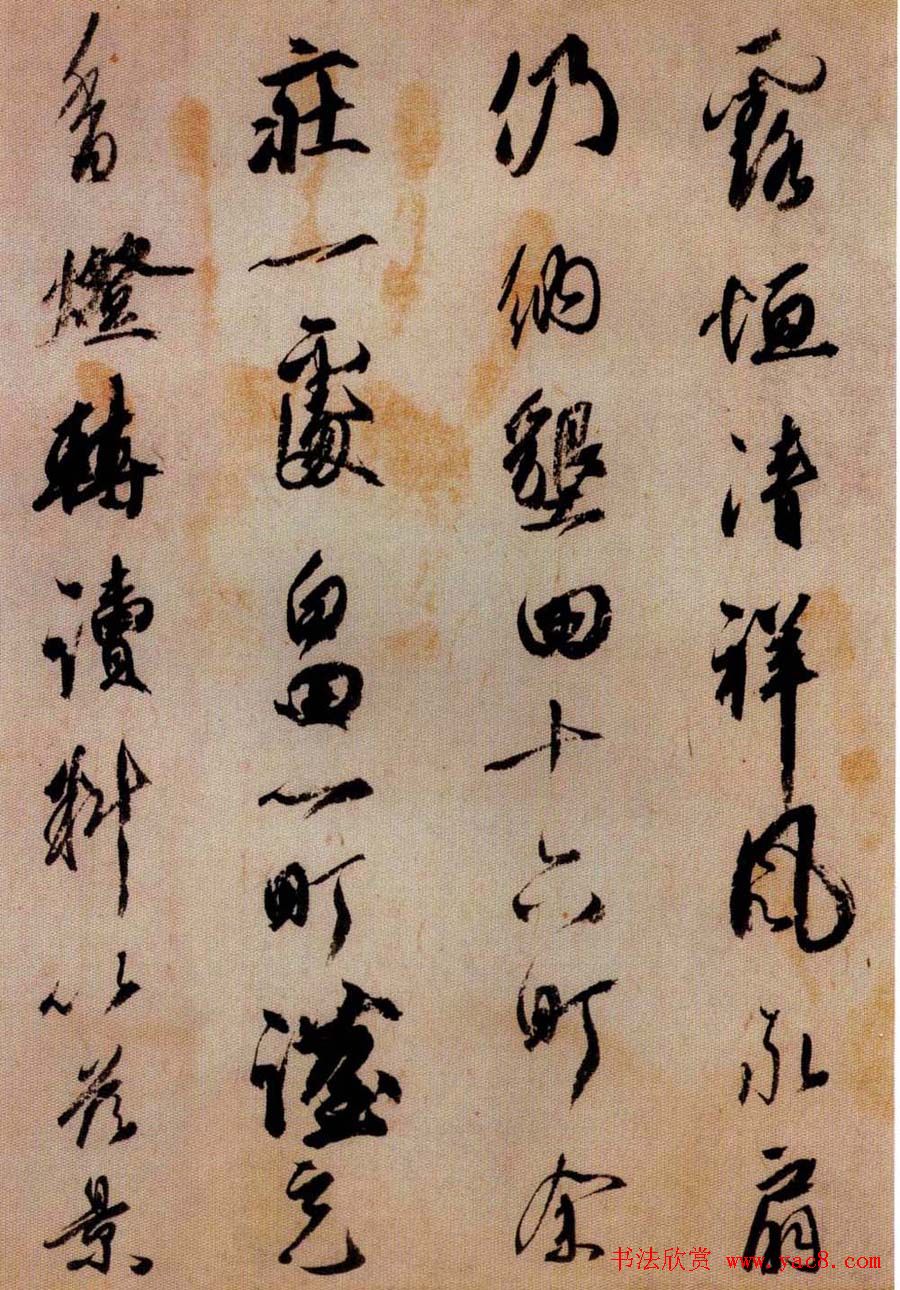 露恒清祥風永扇
仍納墾田十六町余
莊一處畠田一町謹充
香燈轉讀料以茲景
书法欣赏 www.yac8.com